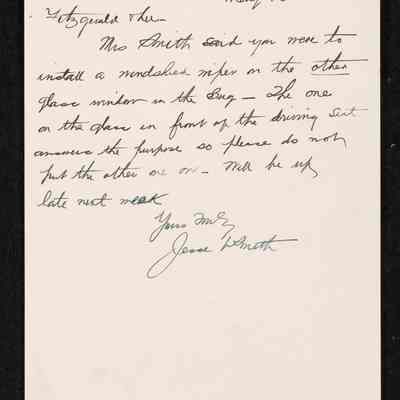 Fitzgerald &
Mrs Smith said you were to
install a windshield wiper on the other
glass window in the Bug — The one
on the glass in front of the driving Seat
answers the purpose so please do not
put the other one on — Will be up
late next week
Yours Truly
Jesse Smith